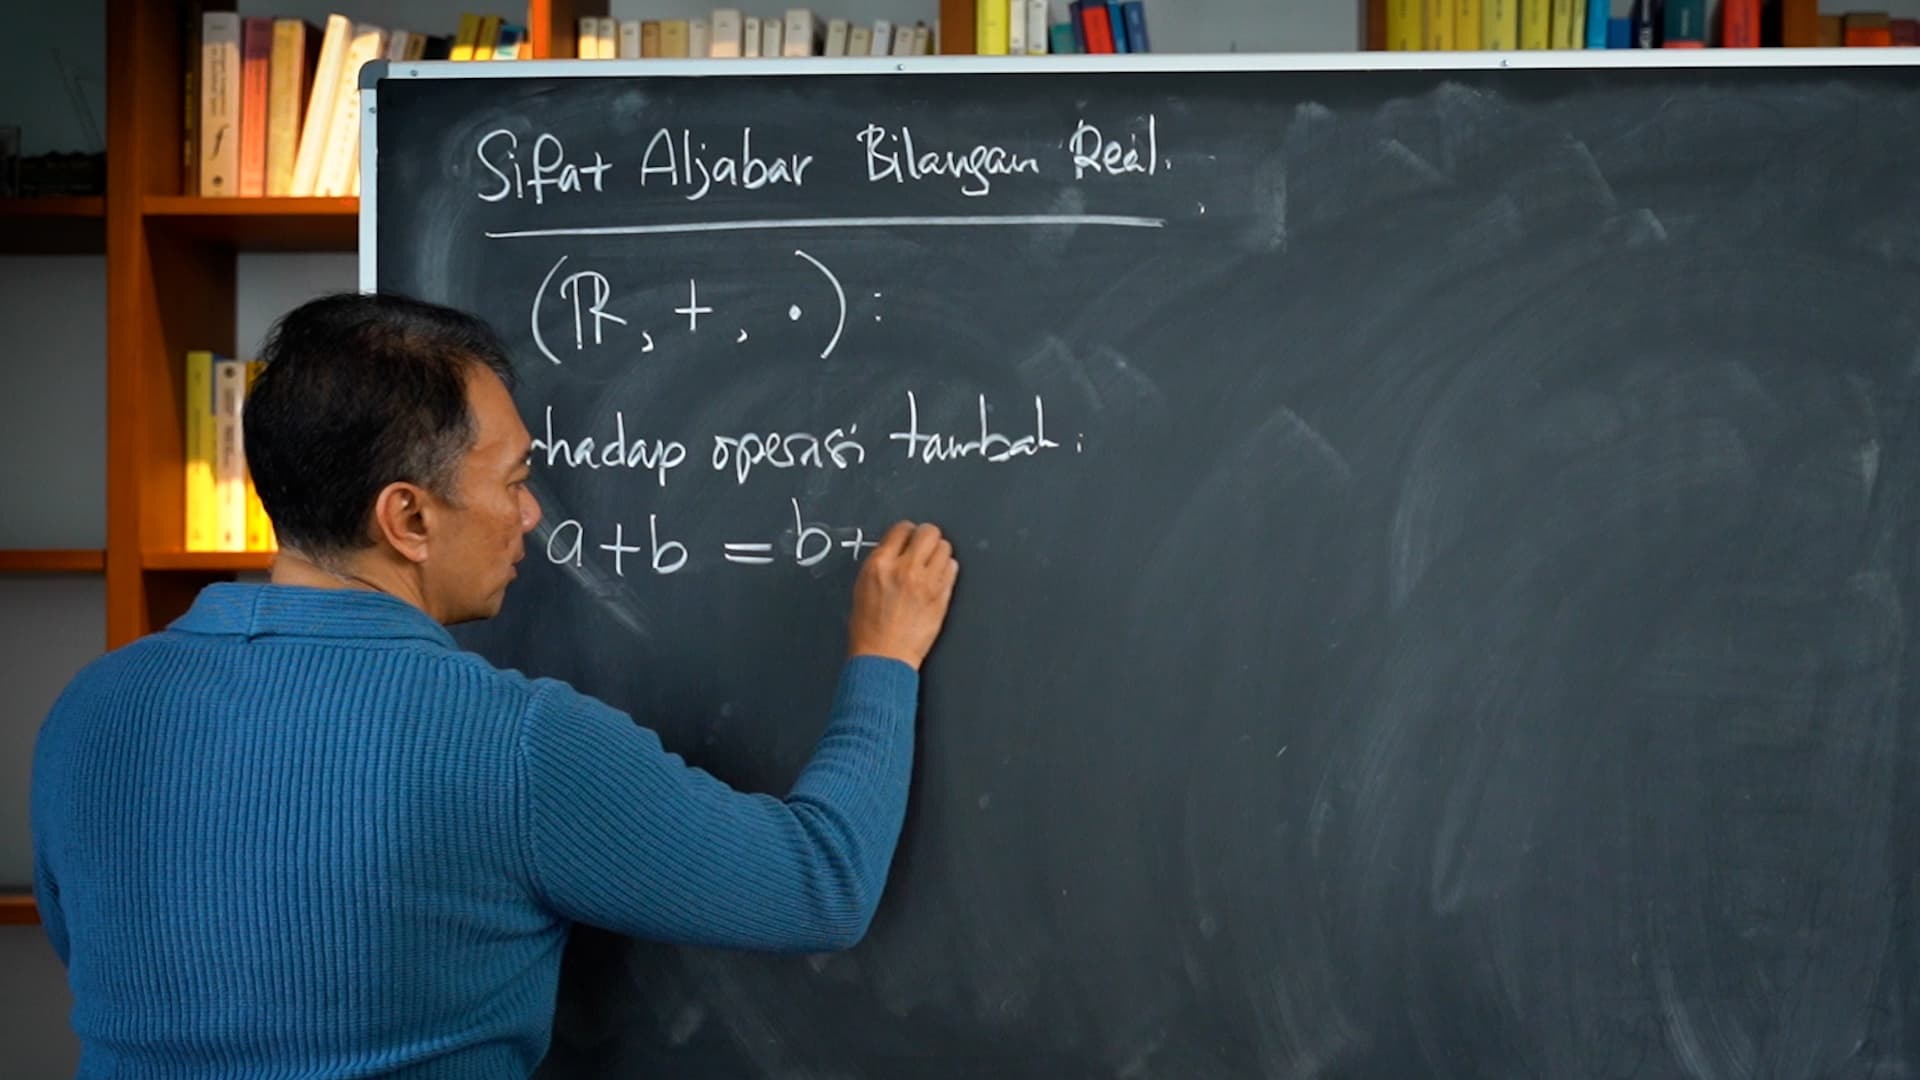 Sifat Aljabar Bilangan Real.
(ℝ, +, ·) :
rhadap operasi tambah :
a+b = b+